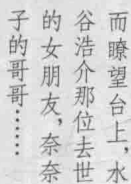 而瞭望台上，水
谷浩介那位去世
的女朋友，奈奈
子的哥哥……